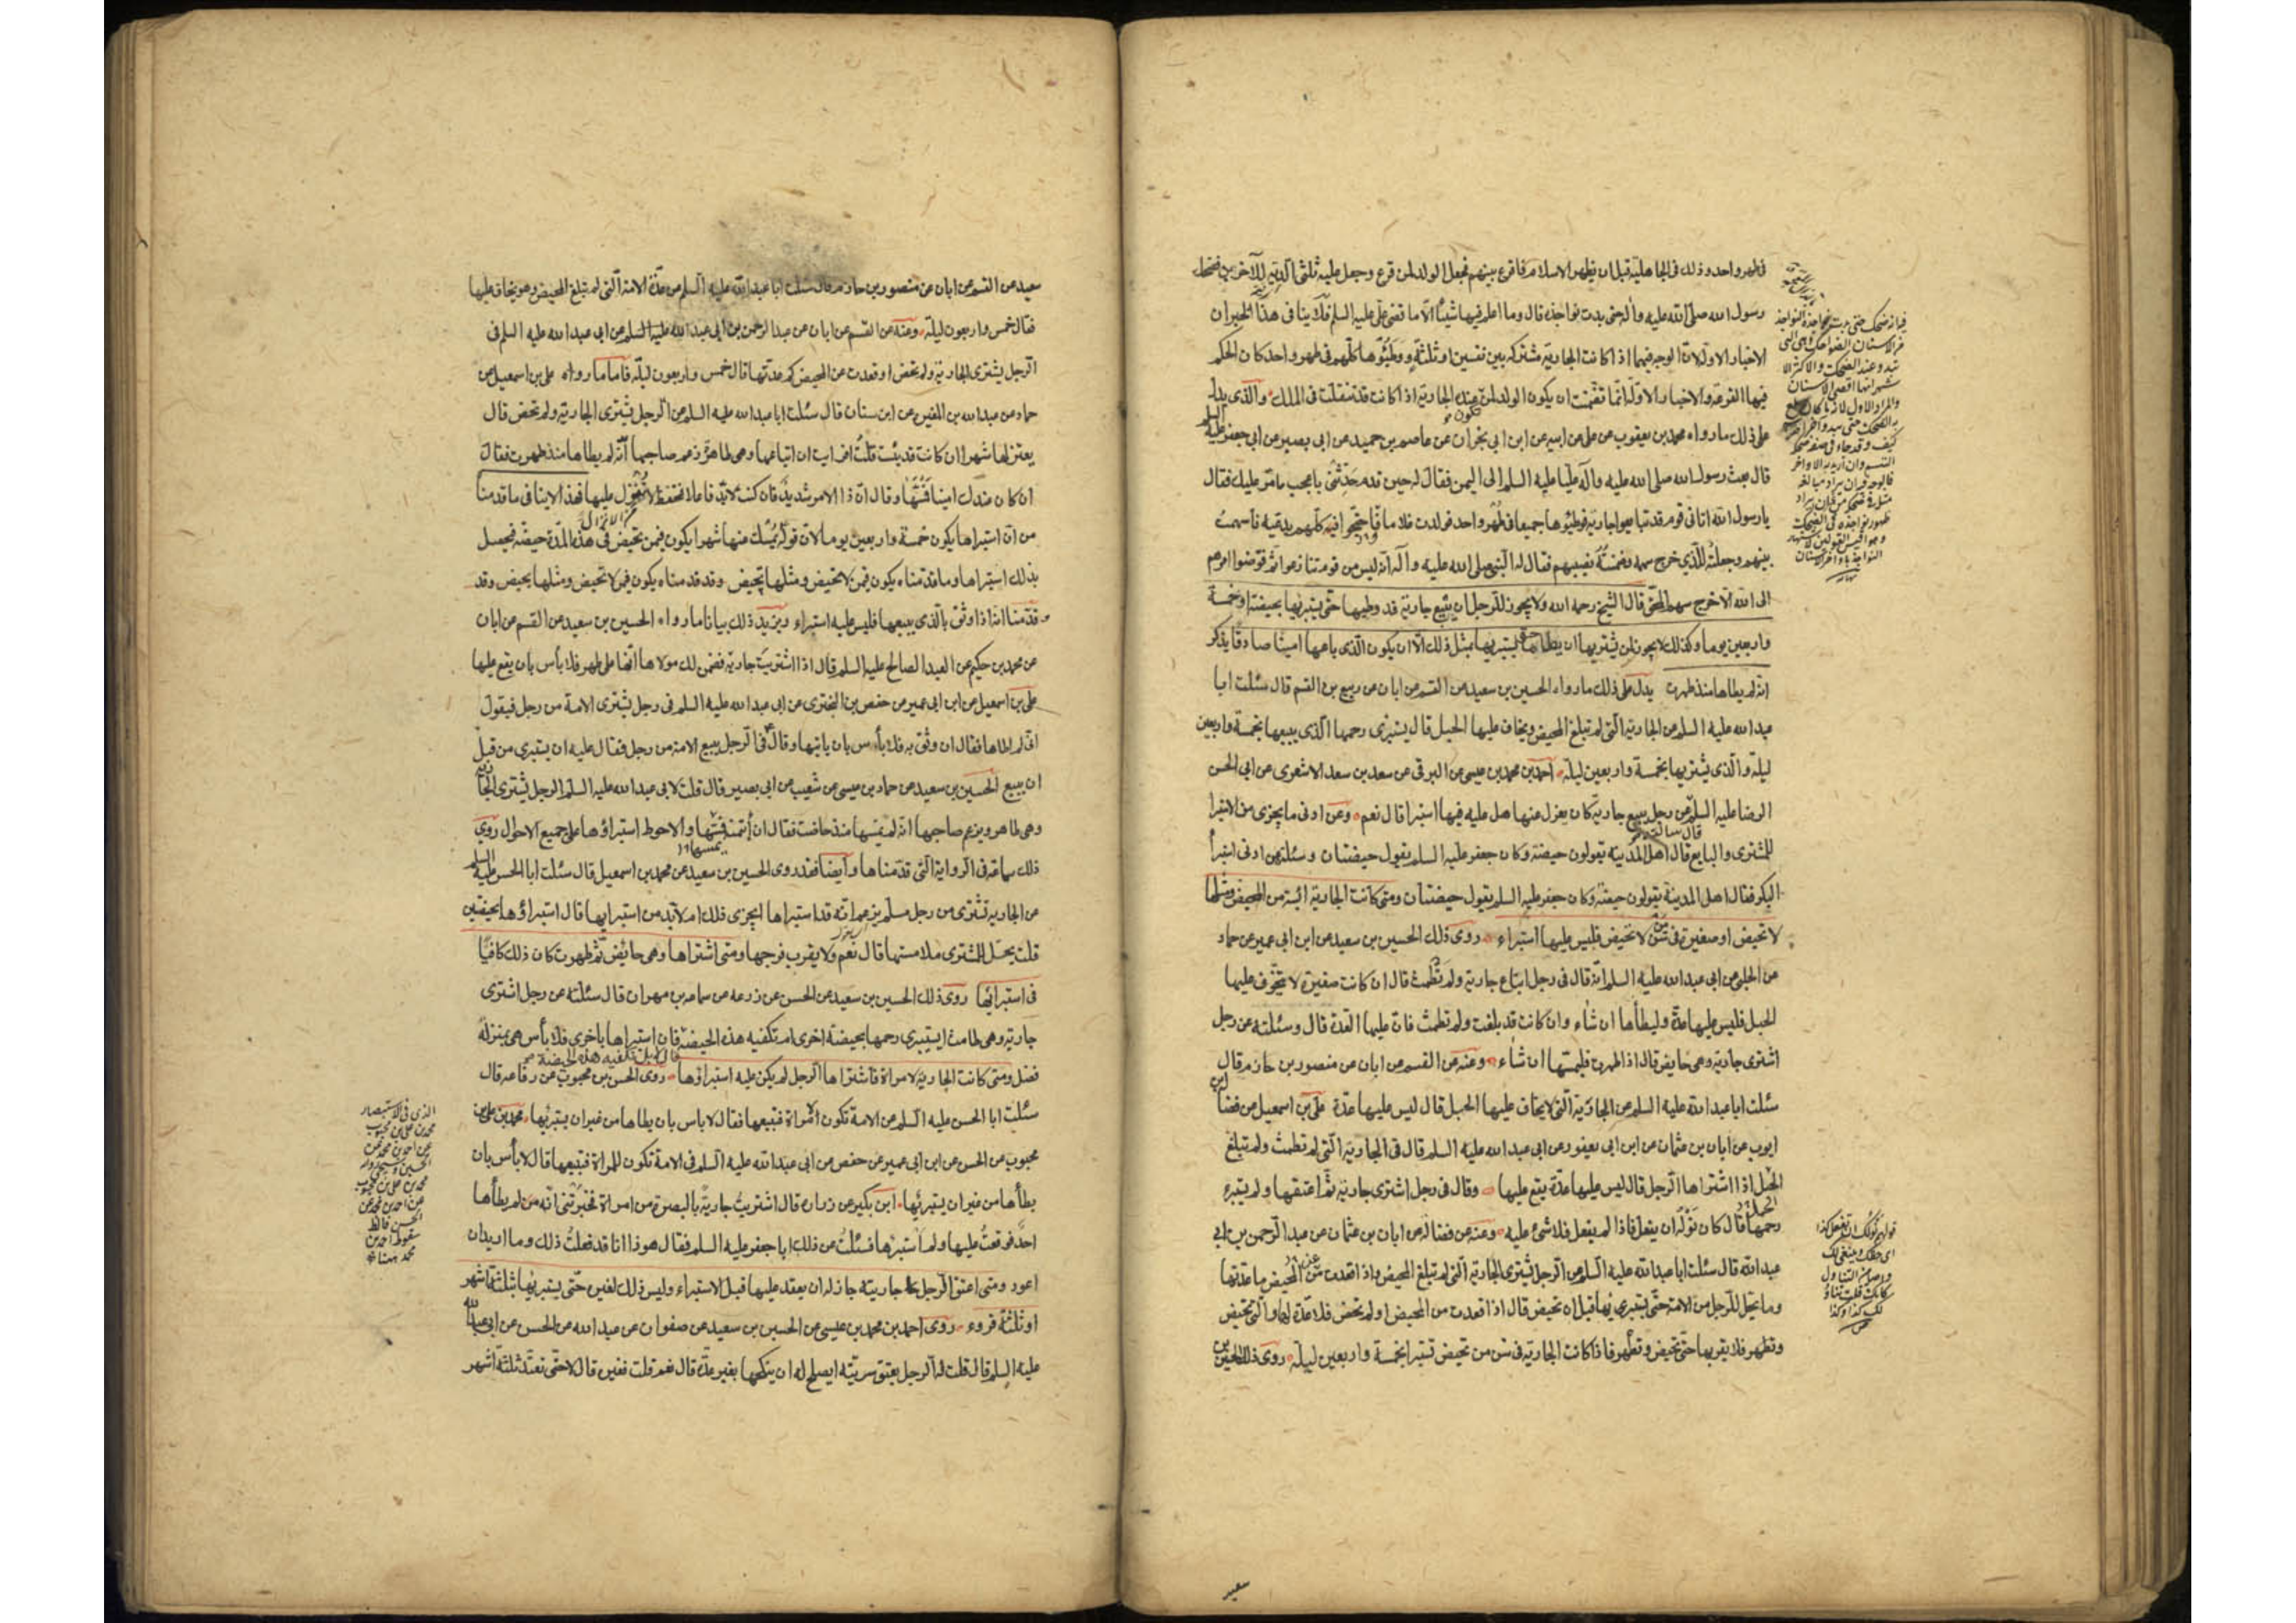 فى طهر واحد وذلك فى الجاهلية قبل ان يظهر الاسلام فاقرع بينهم فجعل الولد لمن قرع وجعل عليه ثلثى الدية للآخرين فضحك
رسول الله صلى الله عليه وآله حتى بدت نواجذه قال وما اعلم فيها شيئا الا ما قضى على عليه السلم فلا ينافى هذا الخبران
الاخبار الاولة لان الوجه فيهما اذا كانت الجارية مشتركة بين نفسين او ثلثة ووطئوها كلهم فى طهر واحد كان الحكم
فيها القرعة والاخبار الاولة انما تضمنت ان يكون الولد لمن عنده الجارية اذا كانت قد تنقلت فى الملك والذى يدل
على ذلك ما رواه محمد بن يعقوب عن على عن ابيه عن ابن ابى نجران عن عاصم بن حميد عن ابى بصير عن ابى جعفر عليه السلم
قال بعث رسول الله صلى الله عليه وآله عليا عليه السلم الى اليمن فقال له حين قدم حدثنى باعجب ما مر عليك فقال
يا رسول الله اتانى قوم قد تبايعوا جارية فوطئوها جميعا فى طهر واحد فولدت غلاما فاحتجوا فيه كلهم يدعيه فاسهمت
بينهم وجعلته للذى خرج سهمه وضمنته نصيبهم فقال له النبى صلى الله عليه وآله انه ليس من قوم تنازعوا ثم فوضوا امرهم
الى الله الا خرج سهم المحق قال الشيخ رحمه الله ولا يجوز للرجل ان يبيع جارية قد وطيها حتى يستبريها بحيضة او خمسة
واربعين يوما وكذلك لا يجوز لمن يشتريها ان يطاها حتى يستبريها بمثل ذلك الا ان يكون الذى باعها امينا صادقا يذكر
انه لم يطاها منذ طهرت يدل على ذلك ما رواه الحسين بن سعيد عن القسم عن ابان عن ربيع بن القسم قال سئلت ابا
عبد الله عليه السلم عن الجارية التى لم تبلغ المحيض ويخاف عليها الحبل قال يستبرى رحمها الذى يبيعها بخمسة واربعين
ليلة والذى يشتريها بخمسة واربعين ليلة احمد بن محمد بن عيسى عن البرقى عن سعد بن سعد الاشعرى عن ابى الحسن
الرضا عليه السلم عن رجل يبيع جارية كان يعزل عنها هل عليه فيها استبرا قال نعم وعن ادنى ما يجزى من الاستبرا
للمشترى والبايع قال اهل المدينة يقولون حيضة وكان جعفر عليه السلم يقول حيضتان وسئلته عن ادنى استبرأ
البكر فقال اهل المدينة يقولون حيضة وكان جعفر عليه السلم يقول حيضتان ومتى كانت الجارية ائسة من المحيض ومثلها
لا تحيض او صغيرة فى سن من لا تحيض فليس عليها استبراء روى ذلك الحسين بن سعيد عن ابن ابى عمير عن حماد
عن الحلبى عن ابى عبد الله عليه السلم انه قال فى رجل ابتاع جارية ولم تطمث قال ان كانت صغيرة لا يتخوف عليها
الحبل فليس عليها عدة وليطأها ان شاء وان كانت قد بلغت ولم تطمث فان عليها العدة قال وسئلته عن رجل
اشترى جارية وهى حايض قال اذا طهرت فليمسها ان شاء وعنه عن القسم عن ابان عن منصور بن حازم قال
سئلت ابا عبد الله عليه السلم عن الجارية التى لا يخاف عليها الحبل قال ليس عليها عدة على بن اسمعيل عن فضالة بن
ايوب عن ابان بن عثمان عن ابن ابى يعفور عن ابى عبد الله عليه السلم قال فى الجارية التى لم تطمث ولم تبلغ
الحبل اذا اشتراها الرجل قال ليس عليها عدة يقع عليها وقال فى رجل اشترى جارية ثم اعتقها ولم يستبرء
رحمها قال كان نوله ان يفعل فاذا لم يفعل فلا شئ عليه وعنه عن فضالة عن ابان بن عثمان عن عبد الرحمن بن ابى
عبد الله قال سئلت ابا عبد الله عليه السلم عن الرجل يشترى الجارية التى لم تبلغ المحيض واذا قعدت عن المحيض ما عدتها
وما يحل للرجل من الامة حتى يستبرى نها قبل ان تحيض قال اذا قعدت من المحيض او لم تحض فلا عدة لها والتى تحيض
وتطهر فلا يقربها حتى تحيض وتطهر فاذا كانت الجارية فى سن من تحيض تستبرا بخمسة واربعين ليلة روى ذلك الحسين بن
سعيد
قولهم نولك ان تفعل كذا
اى حقك وينبغى لك
واصله من التناول
كانك قلت تناولك
كذا وكذا
سعيد عن القسم عن ابان عن منصور بن حازم قال سئلت ابا عبد الله عليه السلم عن عدة الامة التى لم تبلغ المحيض وهو يخاف عليها
فقال خمس واربعون ليلة وعنه عن القسم عن ابان عن عبد الرحمن بن ابى عبد الله عليه السلم عن ابى عبد الله عليه السلم فى
الرجل يشترى الجارية ولم تحض او قعدت عن المحيض كم عدتها قال خمس واربعون ليلة فاما ما رواه على بن اسمعيل عن
حماد عن عبد الله بن المغيرة عن ابن سنان قال سئلت ابا عبد الله عليه السلم عن الرجل يشترى الجارية ولم تحض قال
يعتزلها شهرا ان كانت قد يئست قلت افرايت ان ابتاعها وهى طاهر وزعم صاحبها انه لم يطاها منذ طهرت فقال
ان كان عندك امينا فمسها وقال ان ذا الامر شديد فان كنت لا بد فاعلا فتحفظ لا تنزل عليها فهذا لا ينافى ما قدمنا
من ان استبراها يكون خمسة واربعين يوما لان قوله يمسك منها شهرا يكون فيمن تحيض فى هذه المدة حيضة فيحصل
بذلك استبراها وما قدمناه يكون فيمن لا تحيض ومثلها تحيض وقد قدمناه يكون فيمن لا تحيض ومثلها يحيض وقد
قدمنا انه اذا وثق بالذى يبيعها فليس عليه استبراء ويزيد ذلك بيانا ما رواه الحسين بن سعيد عن القسم عن ابان
عن محمد بن حكيم عن العبد الصالح عليه السلم قال اذا اشتريت جارية فضمن لك مولاها انها على طهر فلا بأس بان يقع عليها
على بن اسمعيل عن ابن ابى عمير عن حفص بن البخترى عن ابى عبد الله عليه السلم فى رجل يشترى الامة من رجل فيقول
انى لم اطاها فقال ان وثق به فلا بأس بان ياتيها وقال فى الرجل يبيع الامة من رجل فقال عليه ان يستبرى من قبل
ان يبيع الحسين بن سعيد عن حماد بن عيسى عن شعيب عن ابى بصير قال قلت لابى عبد الله عليه السلم الرجل يشترى الجارية
وهى طاهر ويزعم صاحبها انه لم يمسها منذ حاضت فقال ان ائتمنته فمسها والاحوط استبراؤها على جميع الاحوال روى
ذلك سماعة فى الرواية التى قدمناها وايضا فقد روى الحسين بن سعيد عن محمد بن اسمعيل قال سئلت ابا الحسن عليه السلم
عن الجارية تشترى من رجل مسلم يزعم انه قد استبراها ايجزى ذلك ام لا بد من استبرايها قال استبراؤها بحيضتين
قلت يحل للمشترى ملامستها قال نعم ولا يقرب فرجها ومتى اشتراها وهى حايض ثم طهرت كان ذلك كافيا
فى استبرائها روى ذلك الحسين بن سعيد عن الحسن عن زرعه عن سماعه بن مهران قال سئلته عن رجل اشترى
جارية وهى طامث ايستبرى رحمها بحيضة اخرى ام تكفيه هذه الحيضة فان استبراها باخرى فلا بأس هى بمنزلة
قال لا بل تكفيه هذه الحيضة
فضل ومتى كانت الجارية لامراة فاشتراها الرجل لم يكن عليه استبراؤها روى الحسن بن محبوب عن رفاعه قال
سئلت ابا الحسن عليه السلم عن الامة تكون لامراة فتبيعها فقال لا باس بان يطاها من غير ان يستبريها محمد بن على بن
محبوب عن الحسن عن ابن ابى عمير عن حفص عن ابى عبد الله عليه السلم فى الامة تكون للمراة فتبيعها قال لا بأس بان
يطأها من غير ان يستبريها ابن بكير عن زراره قال اشتريت جارية بالبصرة من امراة فخبرتنى انه لم يطأها
احد فوقعت عليها ولم استبرها فسئلت عن ذلك ابا جعفر عليه السلم فقال هو ذا انا قد فعلت ذلك وما اريد ان
اعود ومتى اعتق الرجل جاريته جاز له ان يعقد عليها قبل الاستبراء وليس ذلك لغيره حتى يستبريها بثلثة اشهر
او ثلثة قروء روى احمد بن محمد بن عيسى عن الحسين بن سعيد عن صفوان عن عبد الله عن الحسن عن ابى عبد الله
عليه السلم قال قلت له الرجل يعتق سريته ايصلح له ان ينكحها بغير عدة قال نعم قلت فغيره قال لا حتى تعتد ثلثة اشهر
الذى فى الاستبصار
محمد بن على بن محبوب
عن احمد بن محمد عن
محمد بن على بن محبوب
عن احمد بن محمد عن
الحسن فالظ
سقوط احمد بن
محمد هنا